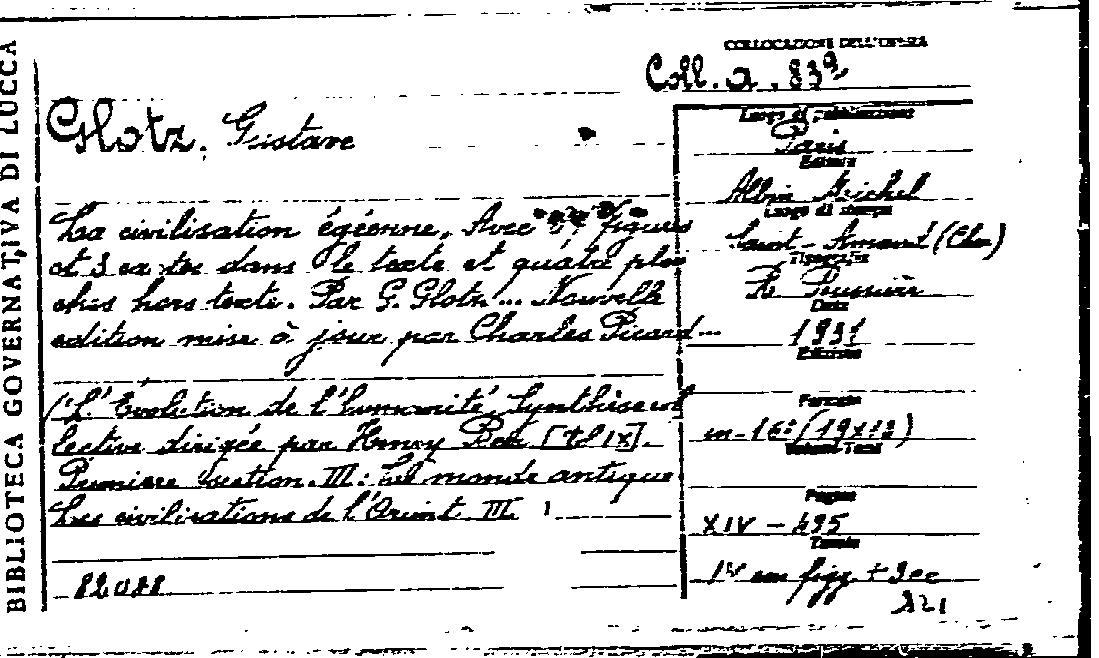 BIBLIOTECA GOVERNATIVA DI LUCCA
COLLOCAZIONE DELL'OPERA
Coll. a. 839
Glotz, Gustave
La civilisation égéenne. Avec figures
et 3 dans le texte et quatre plan
ches hors texte. Par G. Glotz... Nouvelle
edition mise à jour par Charles Picard...
(L'Évolution de l'humanité. Synthèse col
lective dirigée par Henry Berr IX].
Première Section. III: Le monde antique
Les civilisations de l'Orient. III
Luogo di pubblicazione
Paris
Editore
Albin Michel
Luogo di stampa
Saint-Amand (Cher)
Tipografia
Data
Edizione
Formato
in-16° (19x12)
Volumi-Tomi
Pagine
XIV - 495
Tavole
IV con figg.